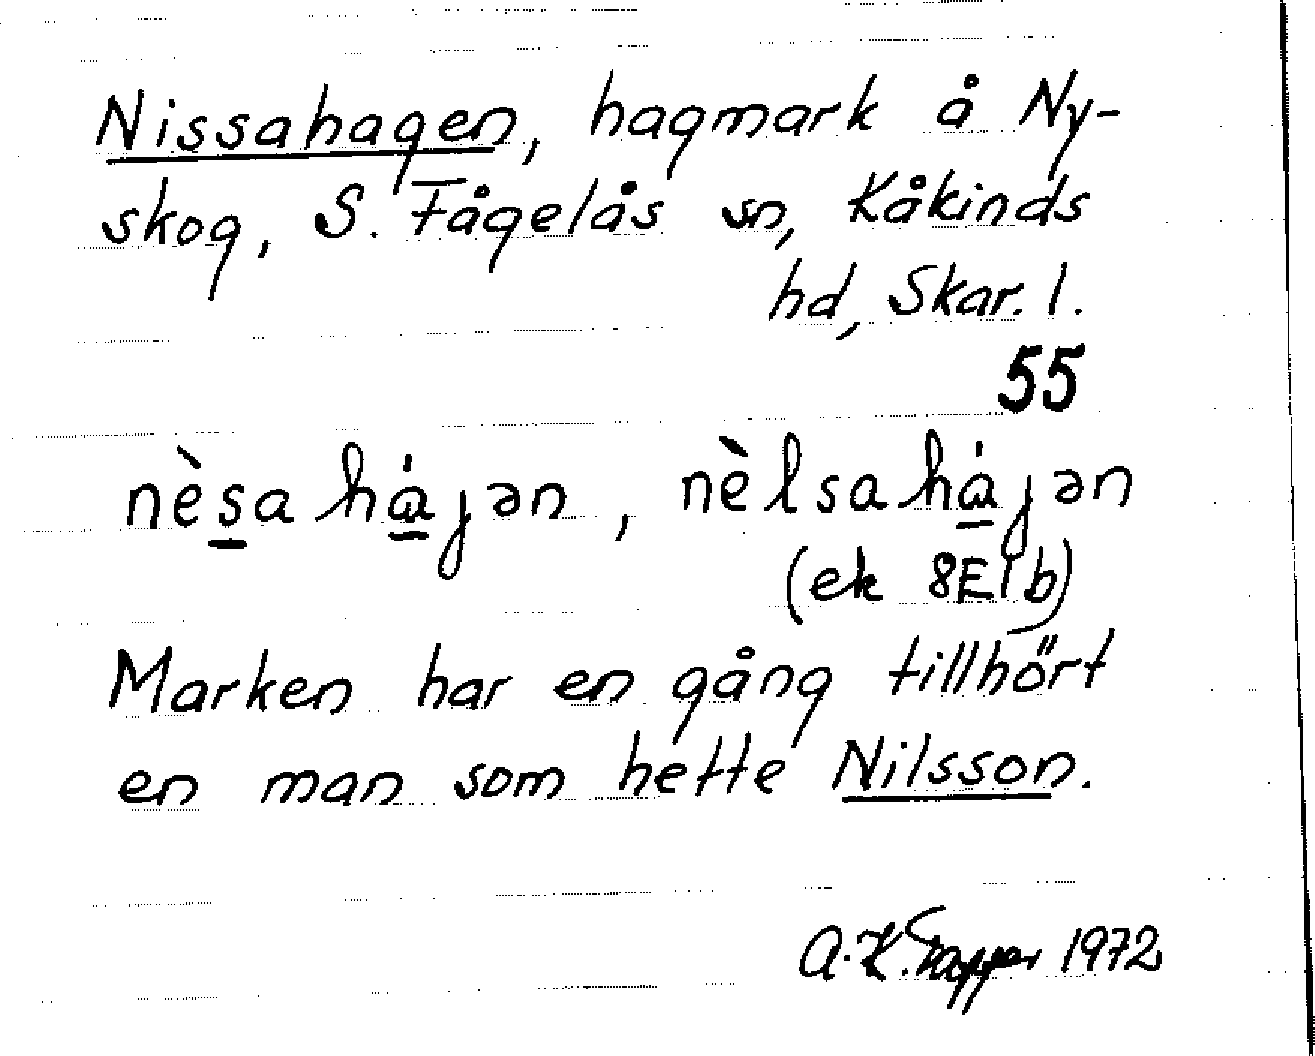 Nissahagen, hagmark å Ny-
skog, S. Fågelås sn, Kåkinds
hd, Skar. l.
55
nèsa há̱jən, nèlsa há̱jən
(ek 8E1b)
Marken har en gång tillhört
en man som hette Nilsson.
A.K. Trapper 1972